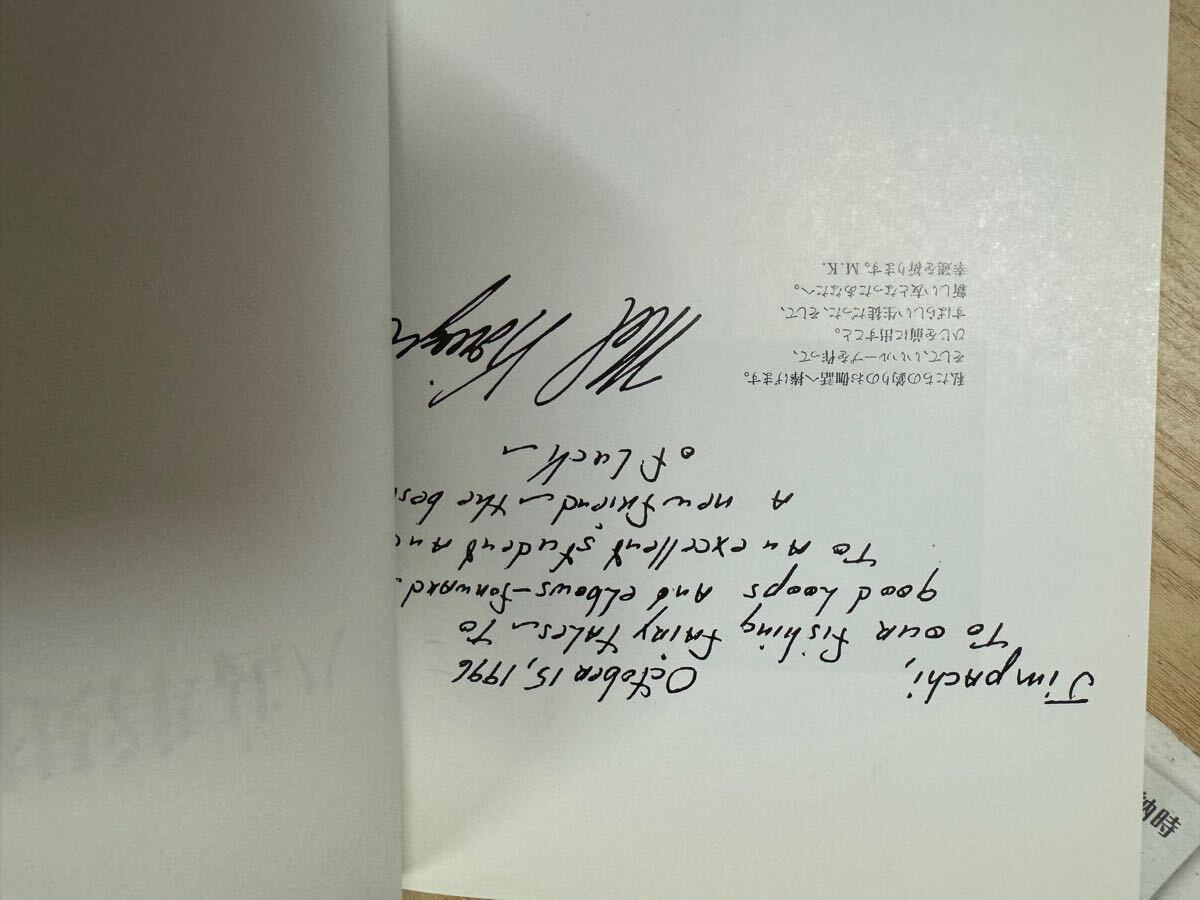 October 15, 1996
Jimpachi,
To our fishing fairy tales – To
good loops and elbows-forward.
To an excellent student and
A new friend – the bes
of luck –
Mel
私たちの釣りのお伽話へ捧げます。
そして、いいループを作って、
ひじを前に出すこと。
すばらしい生徒だった、そして、
新しい友となったあなたへ。
幸運を祈ります。M.K.
納時